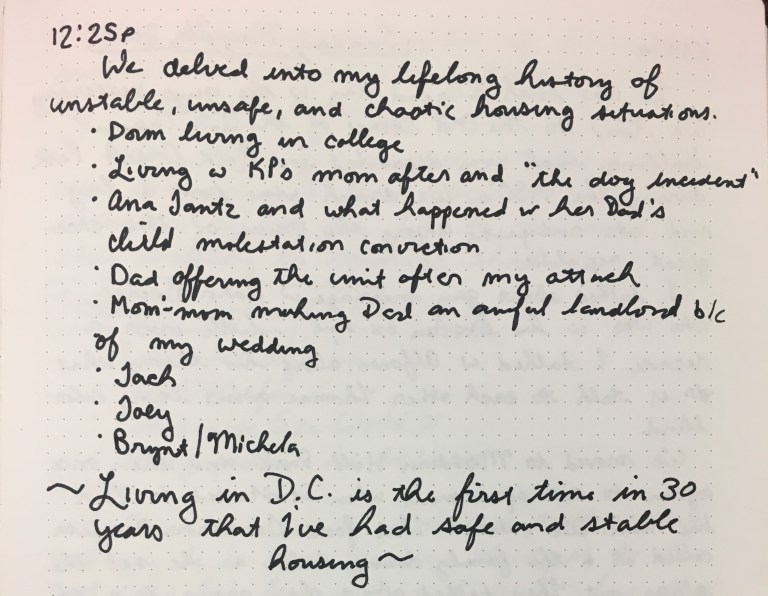 12:25p
We delved into my lifelong history of
unstable, unsafe, and chaotic housing situations.
· Dorm living in college
· Living w KP's mom after and "the dog incident"
· Ana Jantz and what happened w her Dad's
child molestation conviction
· Dad offering the unit after my attack
· Mom-mom making Dad an awful landlord b/c
of my wedding
· Jack
· Joey
· Brynt/Michela
~ Living in D.C. is the first time in 30
years that I've had safe and stable
housing ~